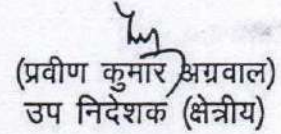 (प्रवीण कुमार अग्रवाल)
उप निदेशक (क्षेत्रीय)